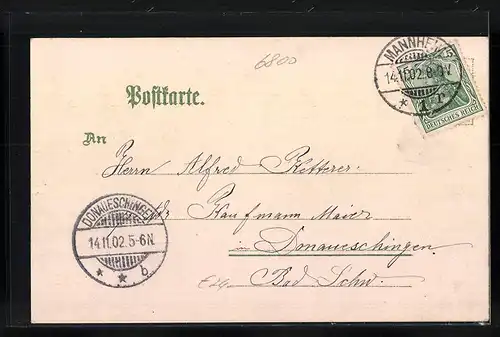 6800
MANNHEIM
14.11.02.8-9V
* 1 r
DEUTSCHES REICH
Postkarte.
An
Herrn Alfred Ketterer.
Kaufmann Maier
in Donaueschingen.
Bad Schw.
DONAUESCHINGEN
14.11.02.5-6N
* * b